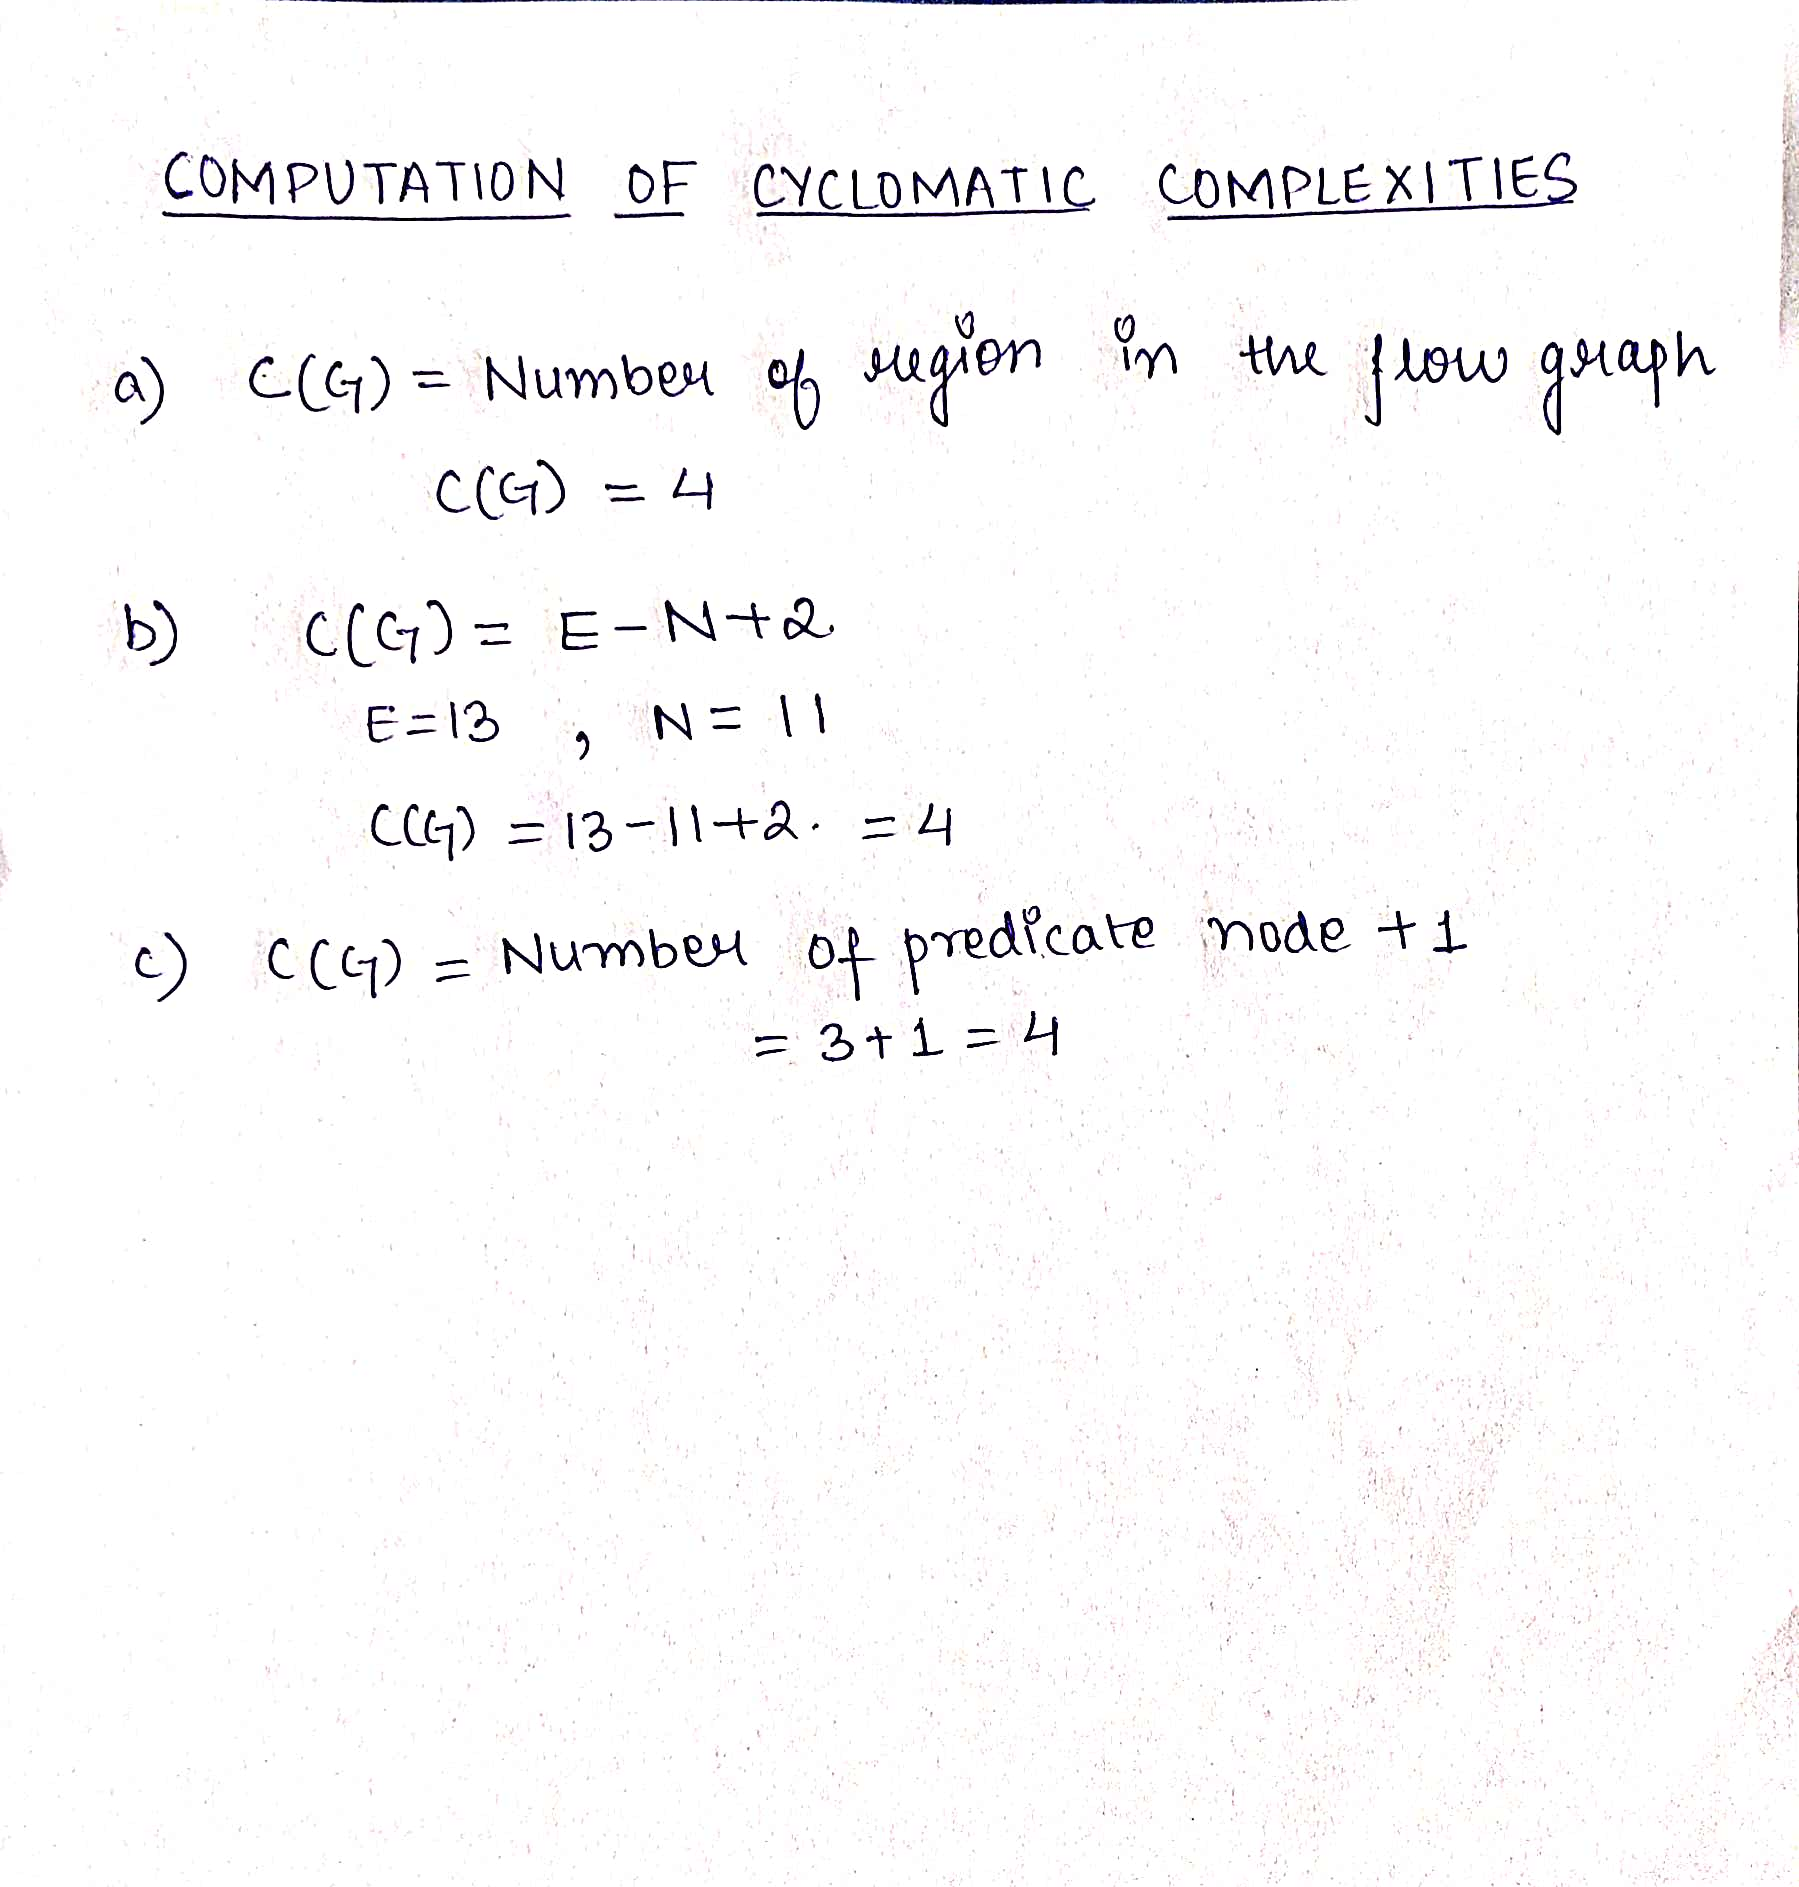 COMPUTATION OF CYCLOMATIC COMPLEXITIES
a) C(G) = Number of region in the flow graph
C(G) = 4
b) C(G) = E-N+2
E=13 , N= 11
C(G) = 13-11+2. = 4
c) C(G) = Number of predicate node + 1
= 3+1 = 4